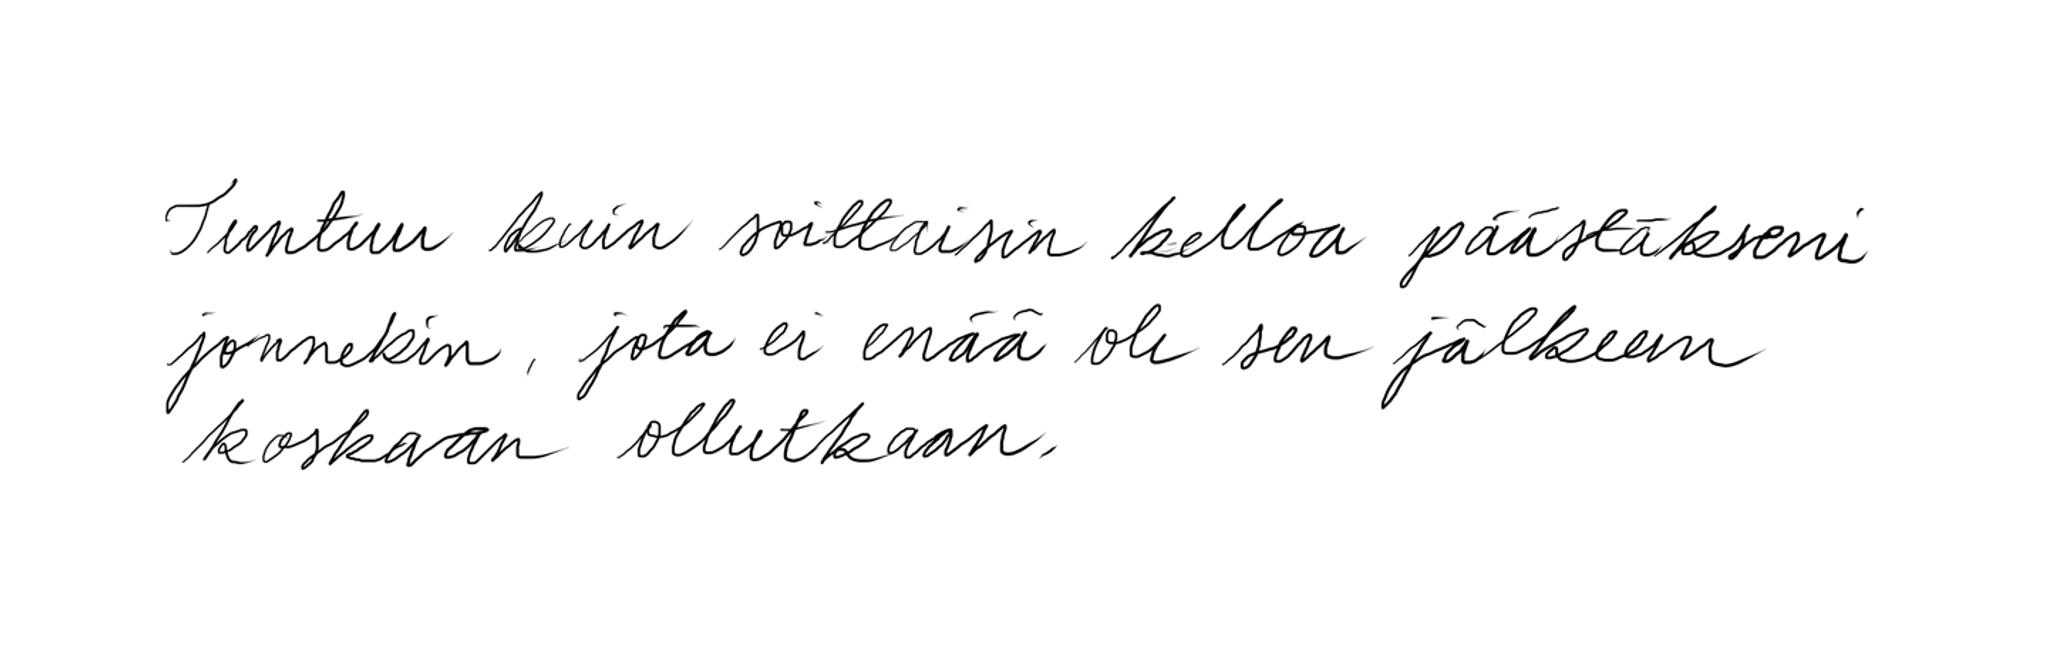 Tuntuu kuin soittaisin kelloa päästäkseni
jonnekin, jota ei enää ole sen jälkeen
koskaan ollutkaan.